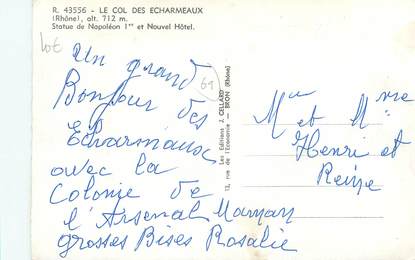 R. 43556 - LE COL DES ECHARMEAUX
(Rhône), alt. 712 m.
Statue de Napoléon 1er et Nouvel Hôtel.
lot
69
Un grand
Bonjour des
Echarmeaux
avec la
Colonie de
l'Arsenal Maman
grosses Bises Rosalie
Les Editions J. CELLARD
13, rue de l'Economie — BRON (Rhône)
Mme
M et
Henri et
Reine